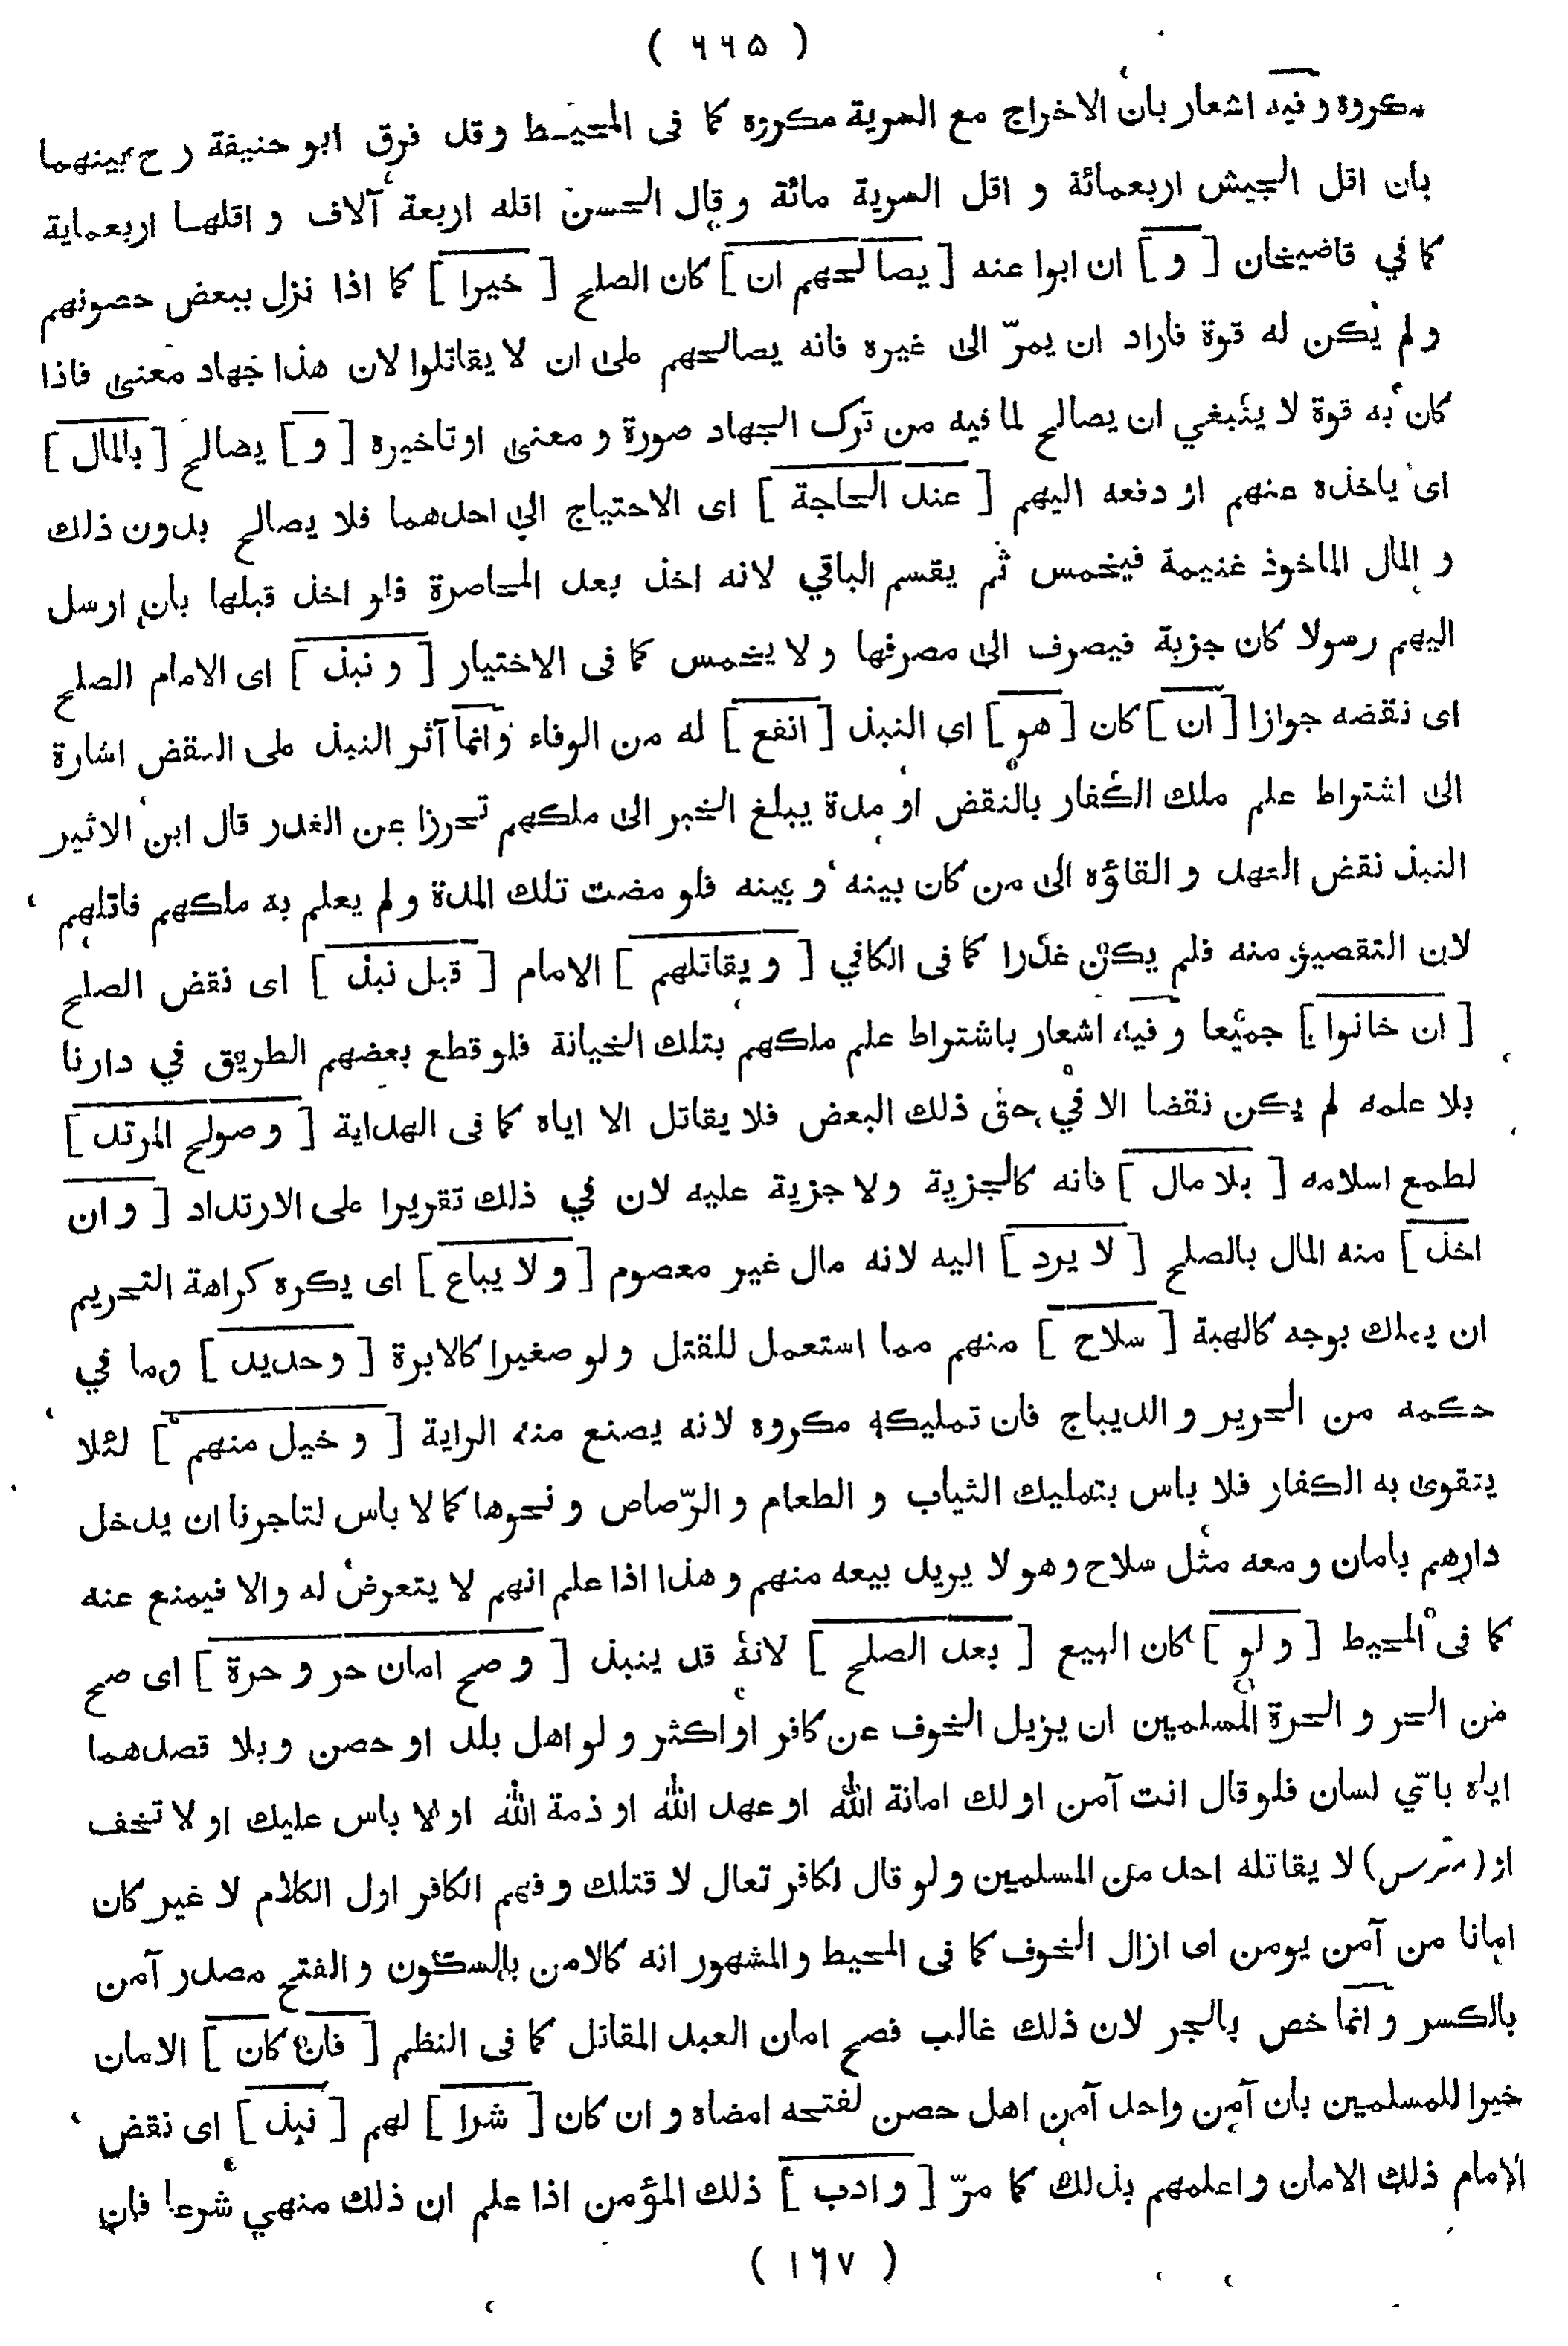 ( ٦٦٥ )
مكروه وفيه اشعار بان الاخراج مع السرية مكروه كما فى المحيط وقد فرق ابو حنيفة رح بينهما
بان اقل الجيش اربعمائة و اقل السرية مائة و قال الحسن اقله اربعة آلاف و اقلها اربعماية
كما في قاضيخان [ و ] ان ابوا عنه [ يصالحهم ان ] كان الصلح [ خيرا ] كما اذا نزل ببعض حصونهم
و لم يكن له قوة فاراد ان يمرّ الى غيره فانه يصالحهم على ان لا يقاتلوا لان هذا جهاد معنى فاذا
كان به قوة لا ينبغي ان يصالح لما فيه من ترك الجهاد صورة و معنى او تاخيره [ و ] يصالح [ بالمال ]
اى ياخذه منهم او دفعه اليهم [ عند الحاجة ] اى الاحتياج الى احدهما فلا يصالح بدون ذلك
و المال الماخوذ غنيمة فيخمس ثم يقسم الباقي لانه اخذ بعد المحاصرة فلو اخذ قبلها بان ارسل
اليهم رسولا كان جزية فيصرف الى مصرفها و لا يخمس كما فى الاختيار [ و نبذ ] اى الامام الصلح
اى نقضه جوازا [ ان ] كان [ هو ] اى النبذ [ انفع ] له من الوفاء وانما آثر النبذ على النقض اشارة
الى اشتراط علم ملك الكفار بالنقض او مدة يبلغ الخبر الى ملكهم تحرزا عن الغدر قال ابن الاثير
النبذ نقض العهد و القاؤه الى من كان بينه و بينه فلو مضت تلك المدة و لم يعلم به ملكهم قاتلهم
لان التقصير منه فلم يكن غدرا كما فى الكافي [ و يقاتلهم ] الامام [ قبل نبذ ] اى نقض الصلح
[ ان خانوا ] جميعا و فيه اشعار باشتراط علم ملكهم بتلك الخيانة فلو قطع بعضهم الطريق في دارنا
بلا علمه لم يكن نقضا الا في حق ذلك البعض فلا يقاتل الا اياه كما فى الهداية [ و صولح المرتد ]
لطمع اسلامه [ بلا مال ] فانه كالجزية ولا جزية عليه لان في ذلك تقريرا على الارتداد [ و ان
اخذ ] منه المال بالصلح [ لا يرد ] اليه لانه مال غير معصوم [ و لا يباع ] اى يكره كراهة التحريم
ان يملك بوجه كالهبة [ سلاح ] منهم مما استعمل للقتل و لو صغيرا كالابرة [ و حديد ] وما في
حكمه من الحرير و الديباج فان تمليكه مكروه لانه يصنع منه الراية [ و خيل منهم ] لئلا
يتقوى به الكفار فلا باس بتمليك الثياب و الطعام و الرّصاص و نحوها كما لا باس لتاجرنا ان يدخل
دارهم بامان و معه مثل سلاح و هو لا يريد بيعه منهم و هذا اذا علم انهم لا يتعرض له والا فيمنع عنه
كما فى المحيط [ و لو ] كان البيع [ بعد الصلح ] لانه قد ينبذ [ و صح امان حر و حرة ] اى صح
من الحر و الحرة المسلمين ان يزيل الخوف عن كافر او اكثر و لو اهل بلد او حصن و بلا قصدهما
اياه باىّ لسان فلو قال انت آمن او لك امانة الله او عهد الله او ذمة الله او لا باس عليك او لا تخف
او (مترس) لا يقاتله احد من المسلمين و لو قال لكافر تعال لاقتلك و فهم الكافر اول الكلام لا غير كان
امانا من آمن يومن اى ازال الخوف كما فى المحيط والمشهور انه كالامن بالسكون و الفتح مصدر آمن
بالكسر و انما خص بالحر لان ذلك غالب فصح امان العبد المقاتل كما فى النظم [ فان كان ] الامان
خيرا للمسلمين بان آمن واحد آمن اهل حصن لفتحه امضاه و ان كان [ شرا ] لهم [ نبذ ] اى نقض
الامام ذلك الامان و اعلمهم بذلك كما مرّ [ و ادب ] ذلك المؤمن اذا علم ان ذلك منهي شرعا فان
( ١٦٧ )